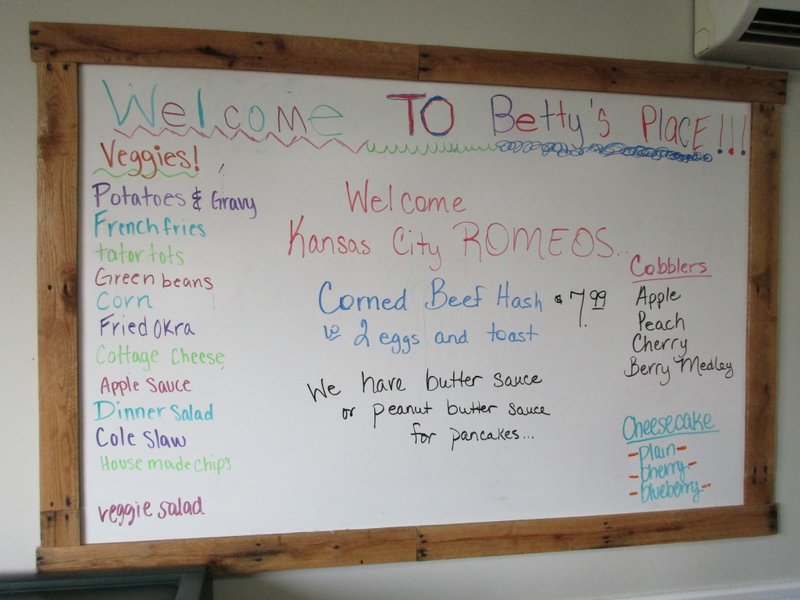 Welcome TO Betty's PLACE!!!
Veggies!
Potatoes & Gravy
French fries
tator tots
Green beans
Corn
Fried Okra
Cottage Cheese
Apple Sauce
Dinner Salad
Cole Slaw
House made chips
veggie salad
Welcome
Kansas City ROMEOS..
Corned Beef Hash $7.99
w 2 eggs and toast
We have butter sauce
or peanut butter sauce
for pancakes...
Cobblers
Apple
Peach
Cherry
Berry Medley
Cheesecake
-plain-
-cherry-
-blueberry-